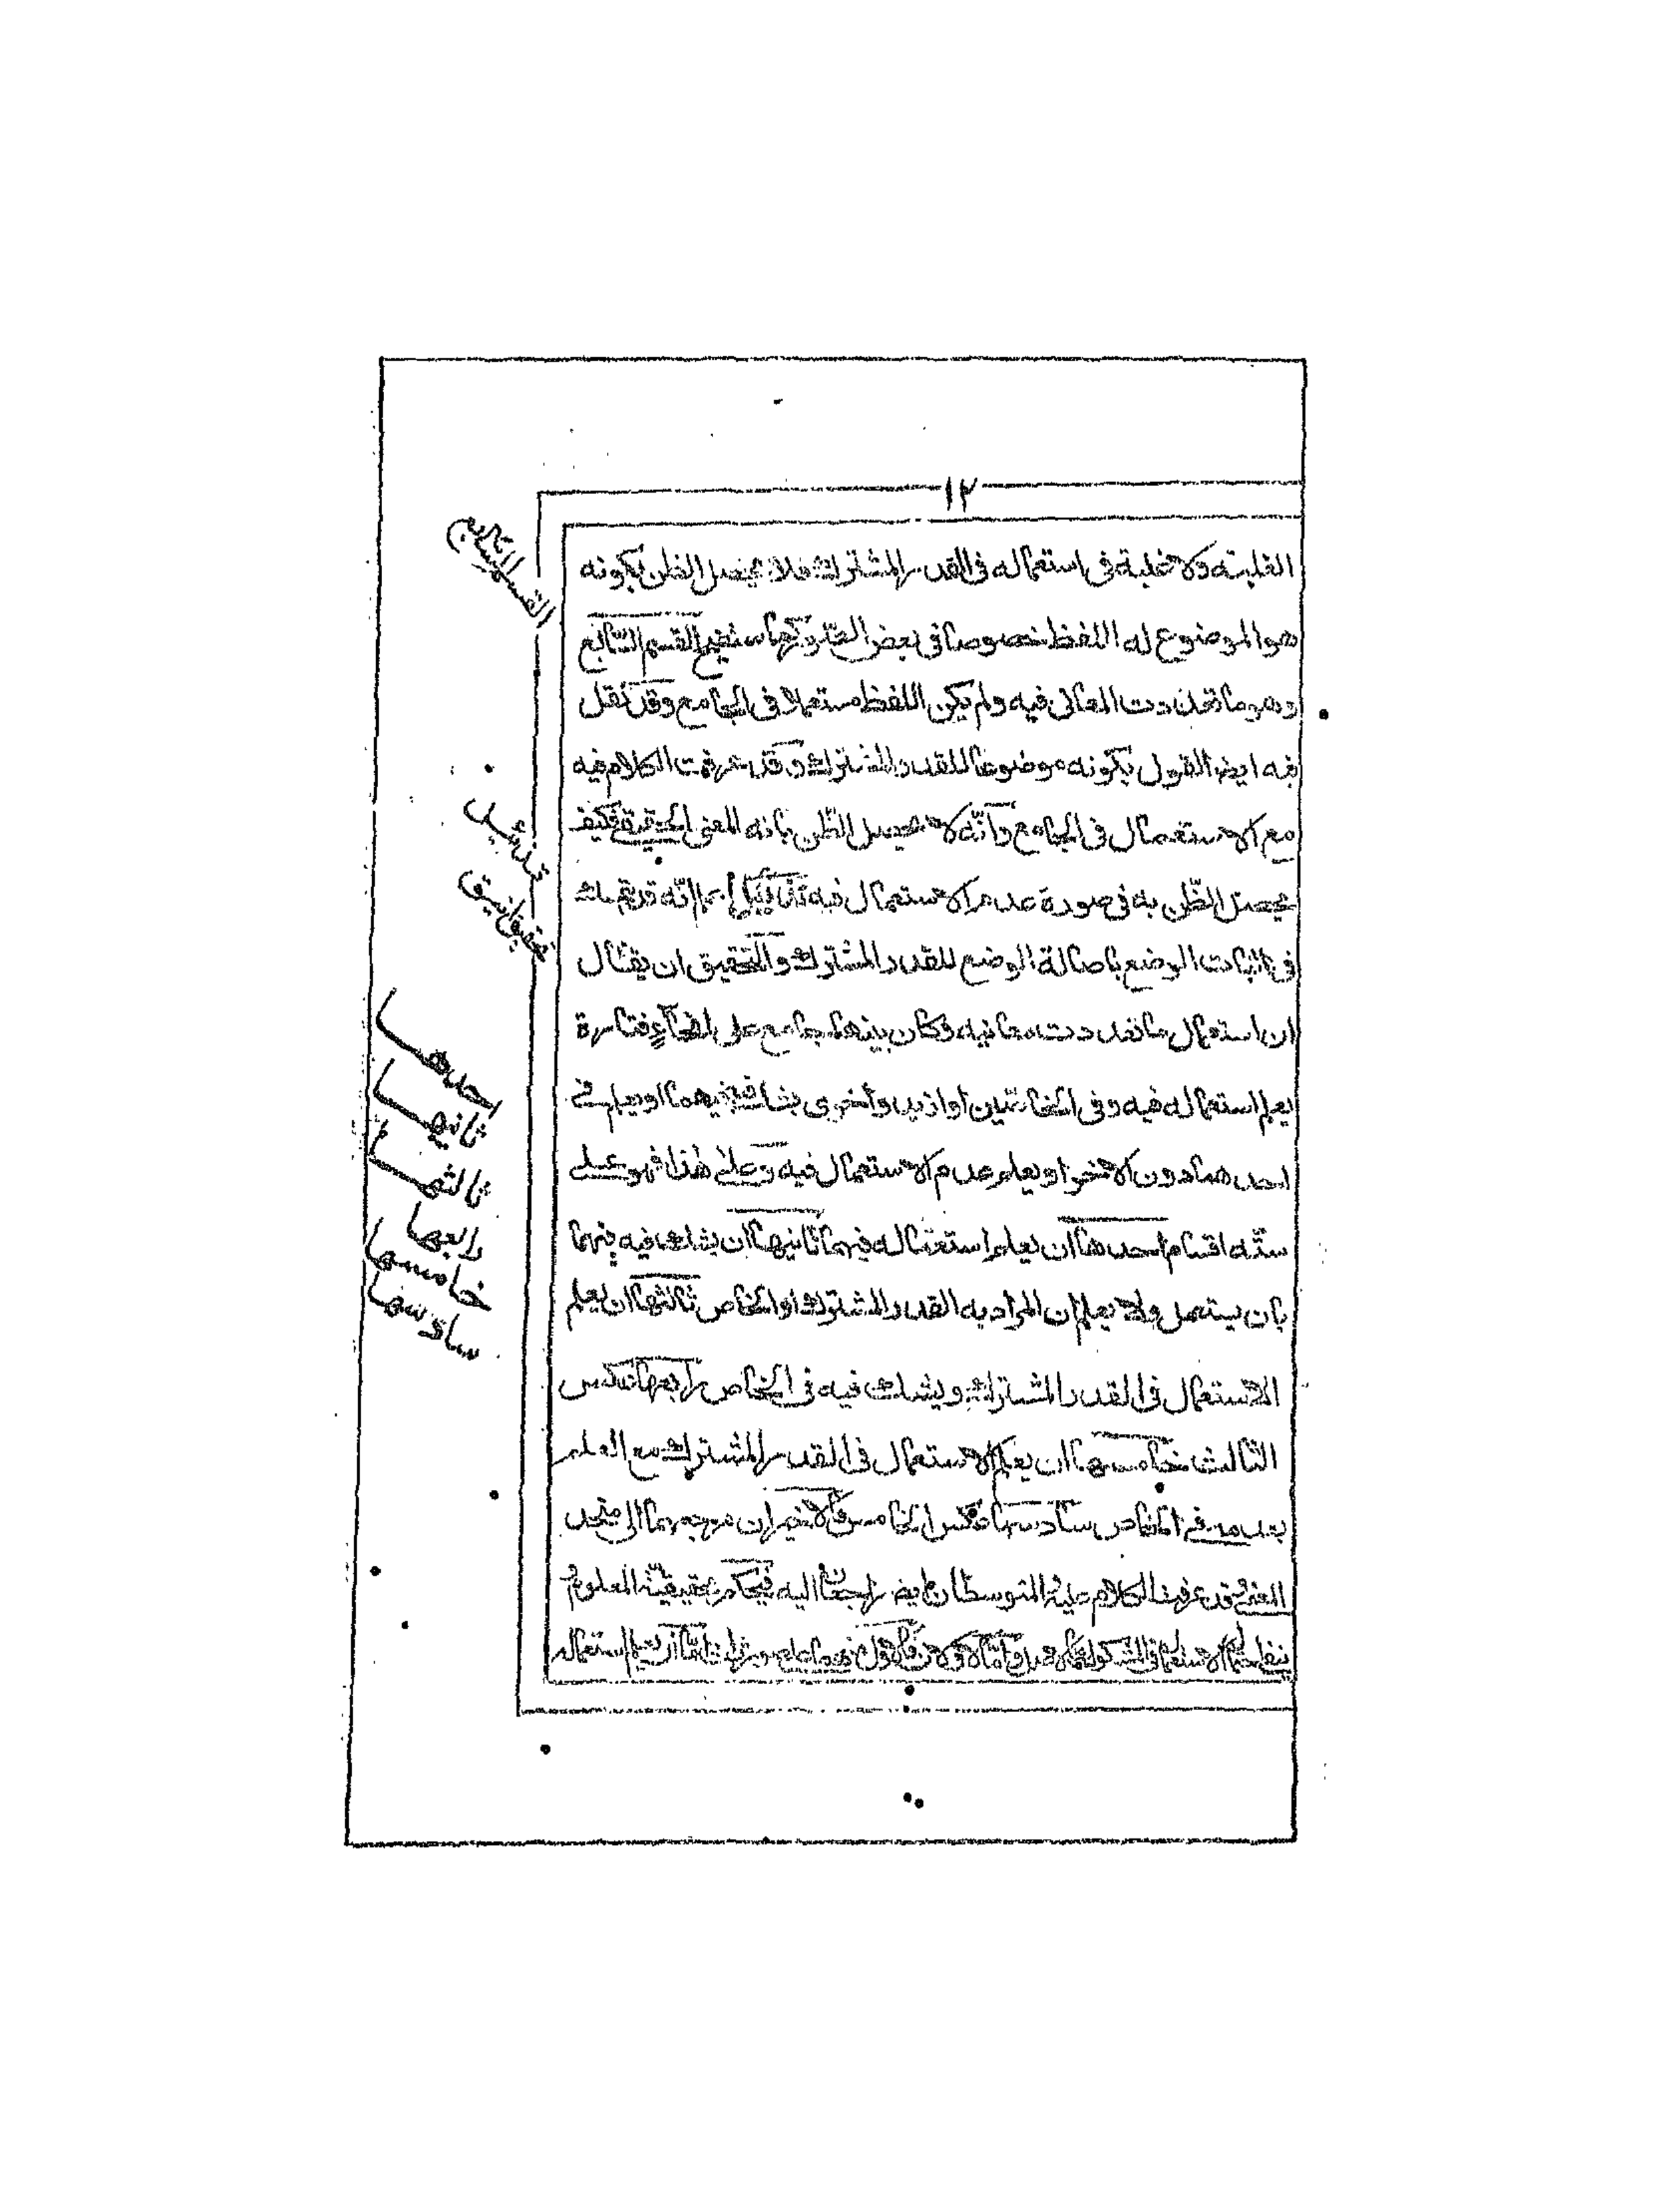 ١٢
الغلبة ولا غلبة في استعماله في القدر المشترك فلا يحصل الظن بكونه
هو الموضوع له اللفظ خصوصا في بعض الصور كما ستعرف القسم السابع
وهو ما تعددت المعاني فيه ولم يكن اللفظ مستعملا في الجامع وقد نقل
فيه ايض القول بكونه موضوعا للقدر المشترك وقد عرفت الكلام فيه
مع الاستعمال في الجامع وانّه لا يحصل الظّن بانه المعنى الحقيقي فكيف
يحصل الظّن به في صورة عدم الاستعمال فيه تذييل انّه قد يتمسك
في اثبات الوضع باصالة الوضع للقدر المشترك والتحقيق ان يقال
ان استعمال ما تعددت معانيه وكان بينهما جامع على انحاء فتارة
يعلم استعماله فيه وفي الخاصّين او ازيد واخرى يشك فيهما او يعلم في
احدهما دون الاخر او يعلم عدم الاستعمال فيه وعلى هذا فهو على
ستّه اقسام احدها ان يعلم استعماله فيهما ثانيها ان يشك فيه فيهما
بان يستعمل ولا يعلم ان المراد به القدر المشترك او الخاص ثالثها ان يعلم
الاستعمال في القدر المشترك ويشك فيه في الخاص رابعها عكس
الثالث خامسها ان يعلم الاستعمال في القدر المشترك مع العلم
بعدمه في الخاص سادسها عكس الخامس والاخيران مرجعهما الى متحد
المعنى وقد عرفت الكلام عليه والمتوسطان ايض راجعان اليه فيحكم بحقيقيّة المعلوم
القسم السابع
تذييل
تحقيق انيق
احدها
ثانيها
ثالثها
رابعها
خامسها
سادسها